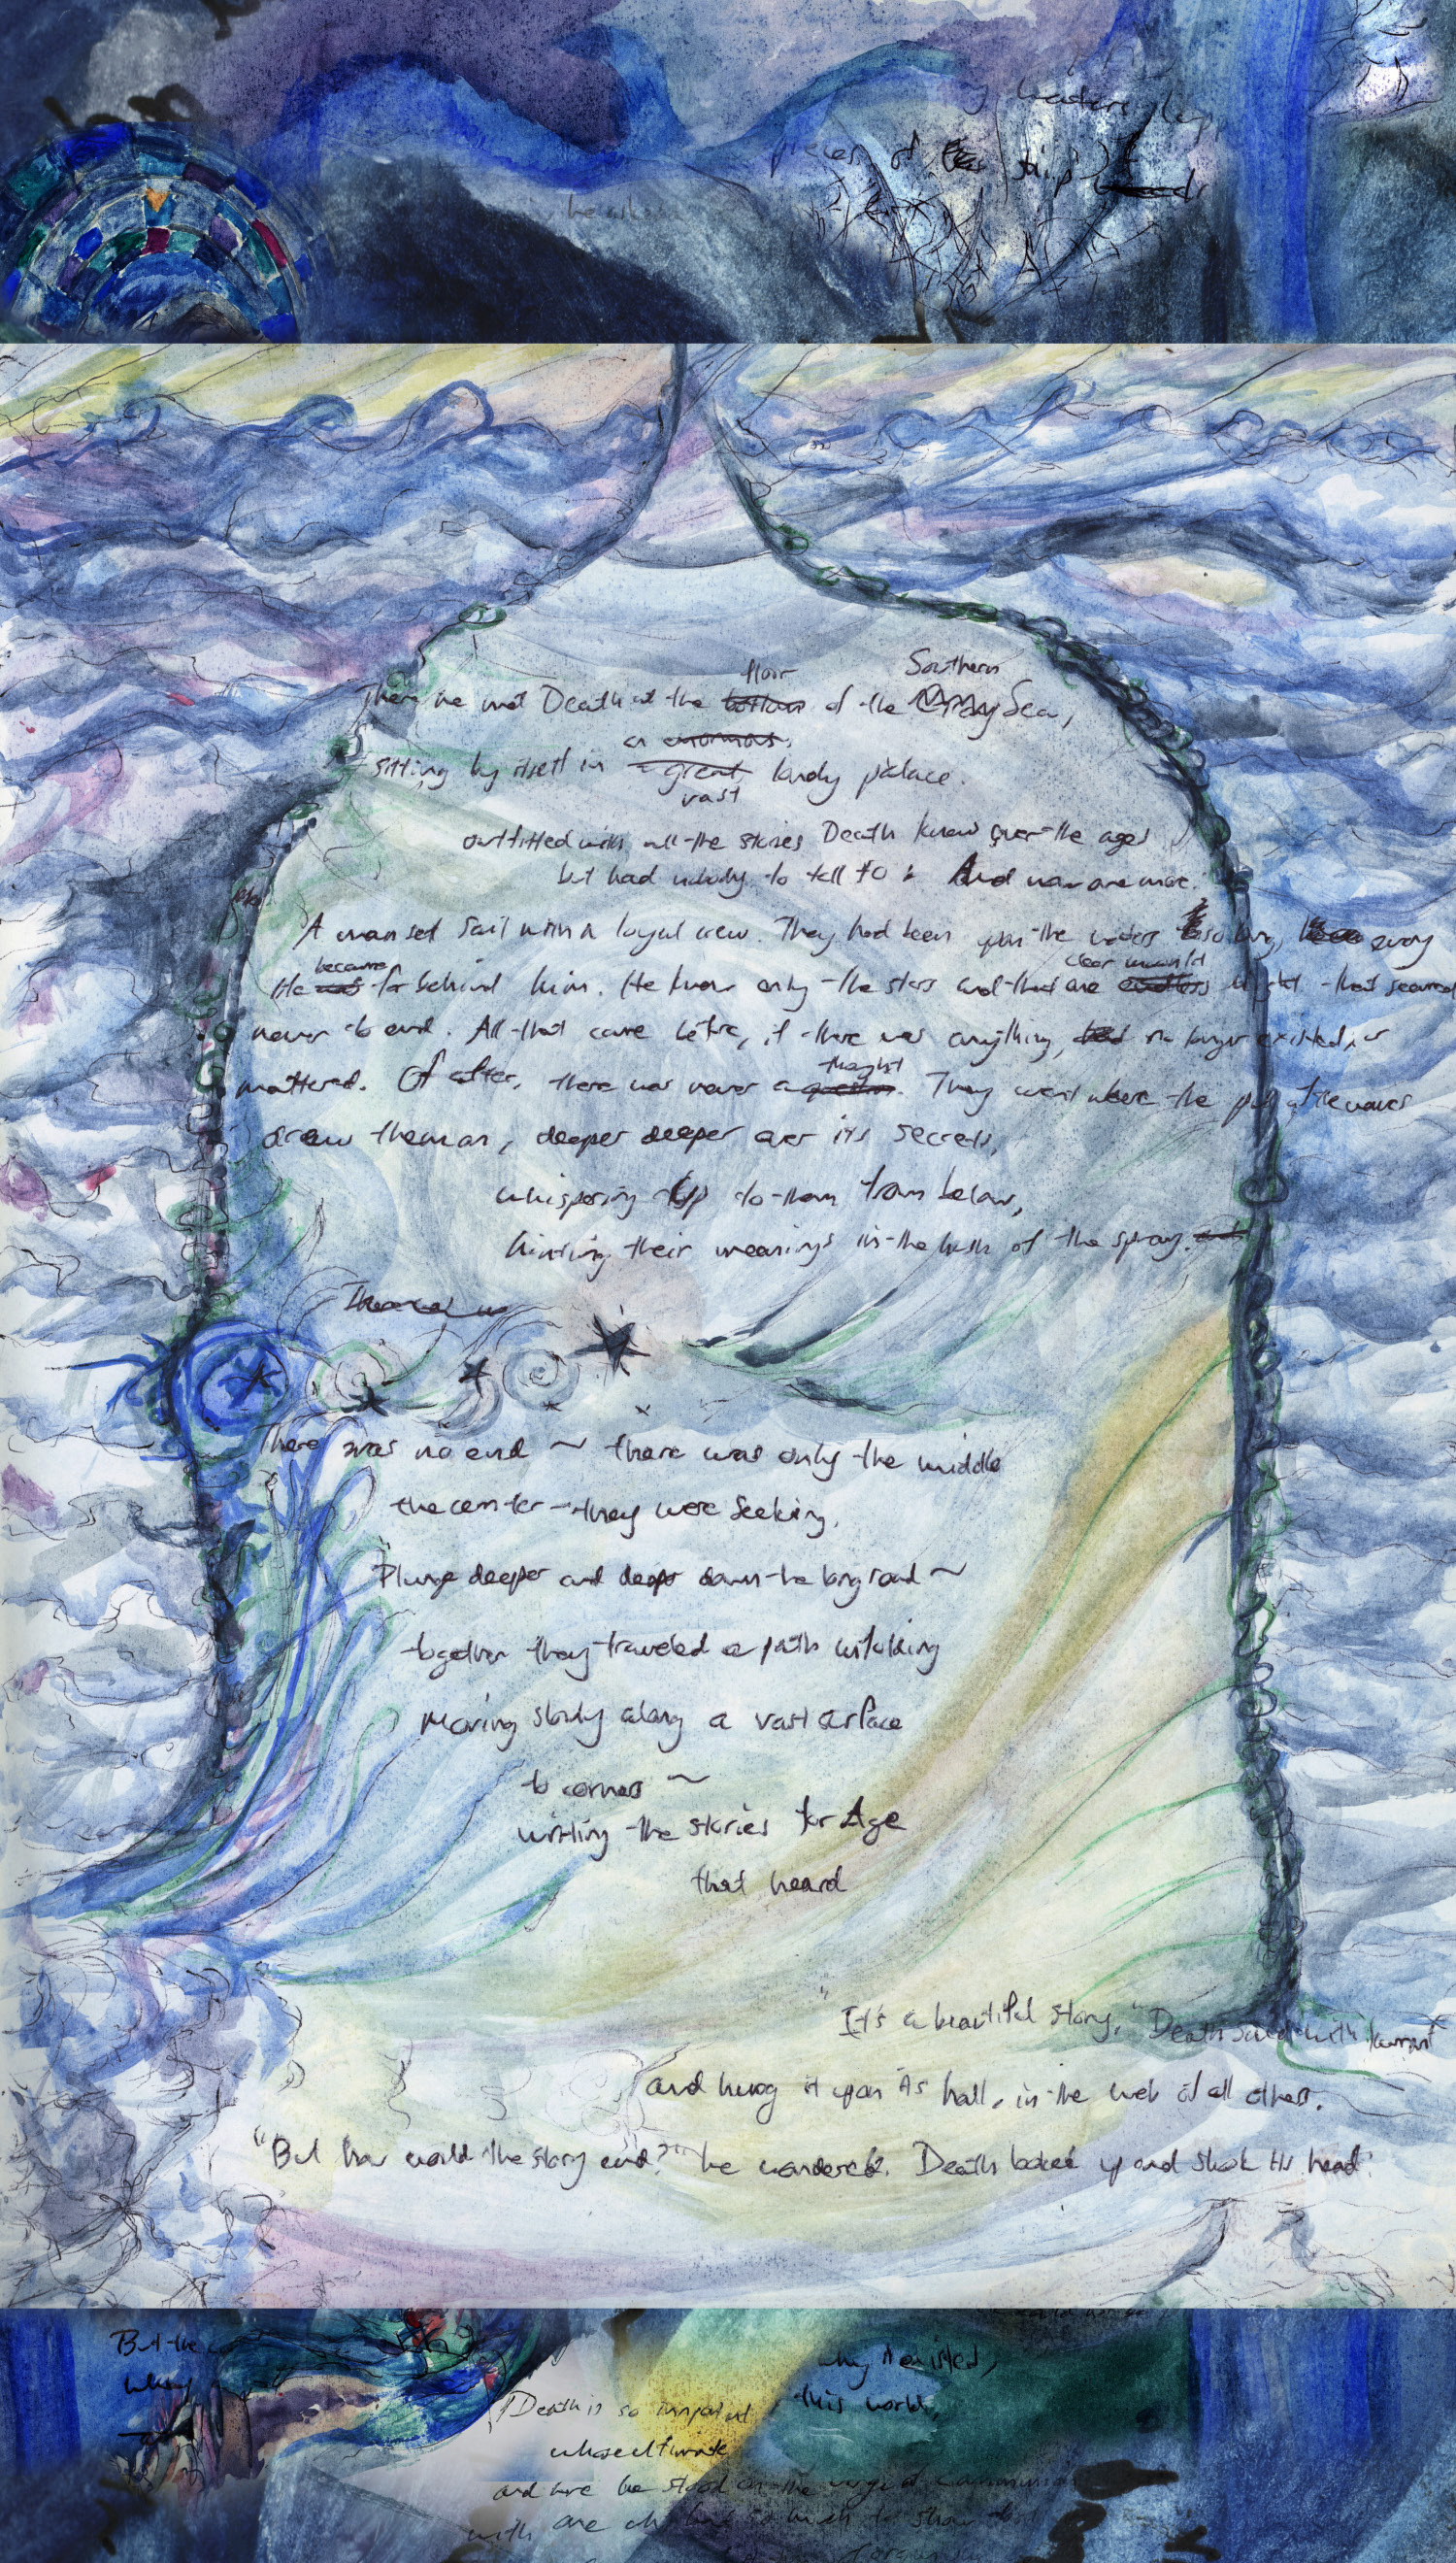 pieces of ship
floor Southern
There he met Death at the bottom of the Gray Sea,
an enormous,
sitting by itself in a great lonely palace.
vast
outfitted with all the stories Death knew over the ages
but had nobody to tell to: And now one more.
A man set sail with a loyal crew. They had been upon the waters so long, every
became clear moonlit
life was far behind him. He knew only the stars and that one endless night that seemed
never to end. All that came before, if there was anything, had no longer existed, or
thought
mattered. Of after, there was never a question. They went where the pull of the waves
drew them on, deeper deeper over its secrets,
whispering up to them from below,
hinting their meanings in the hush of the spray.
There was no end ~ there was only the middle
the center they were seeking.
"Plunge deeper and deeper down the long road ~
together they traveled a path unfolding
Moving slowly along a vast surface
to corners ~
writing the stories for Age
that heard
"It's a beautiful story," Death said with
and hung it upon its hall, in the web of all others.
"But how would the story end?" he wondered. Death looked up and shook its head.
But the
why it existed,
this world,
Death is so
whose ultimate
and here he stood on the verge of
with one who had so much to show